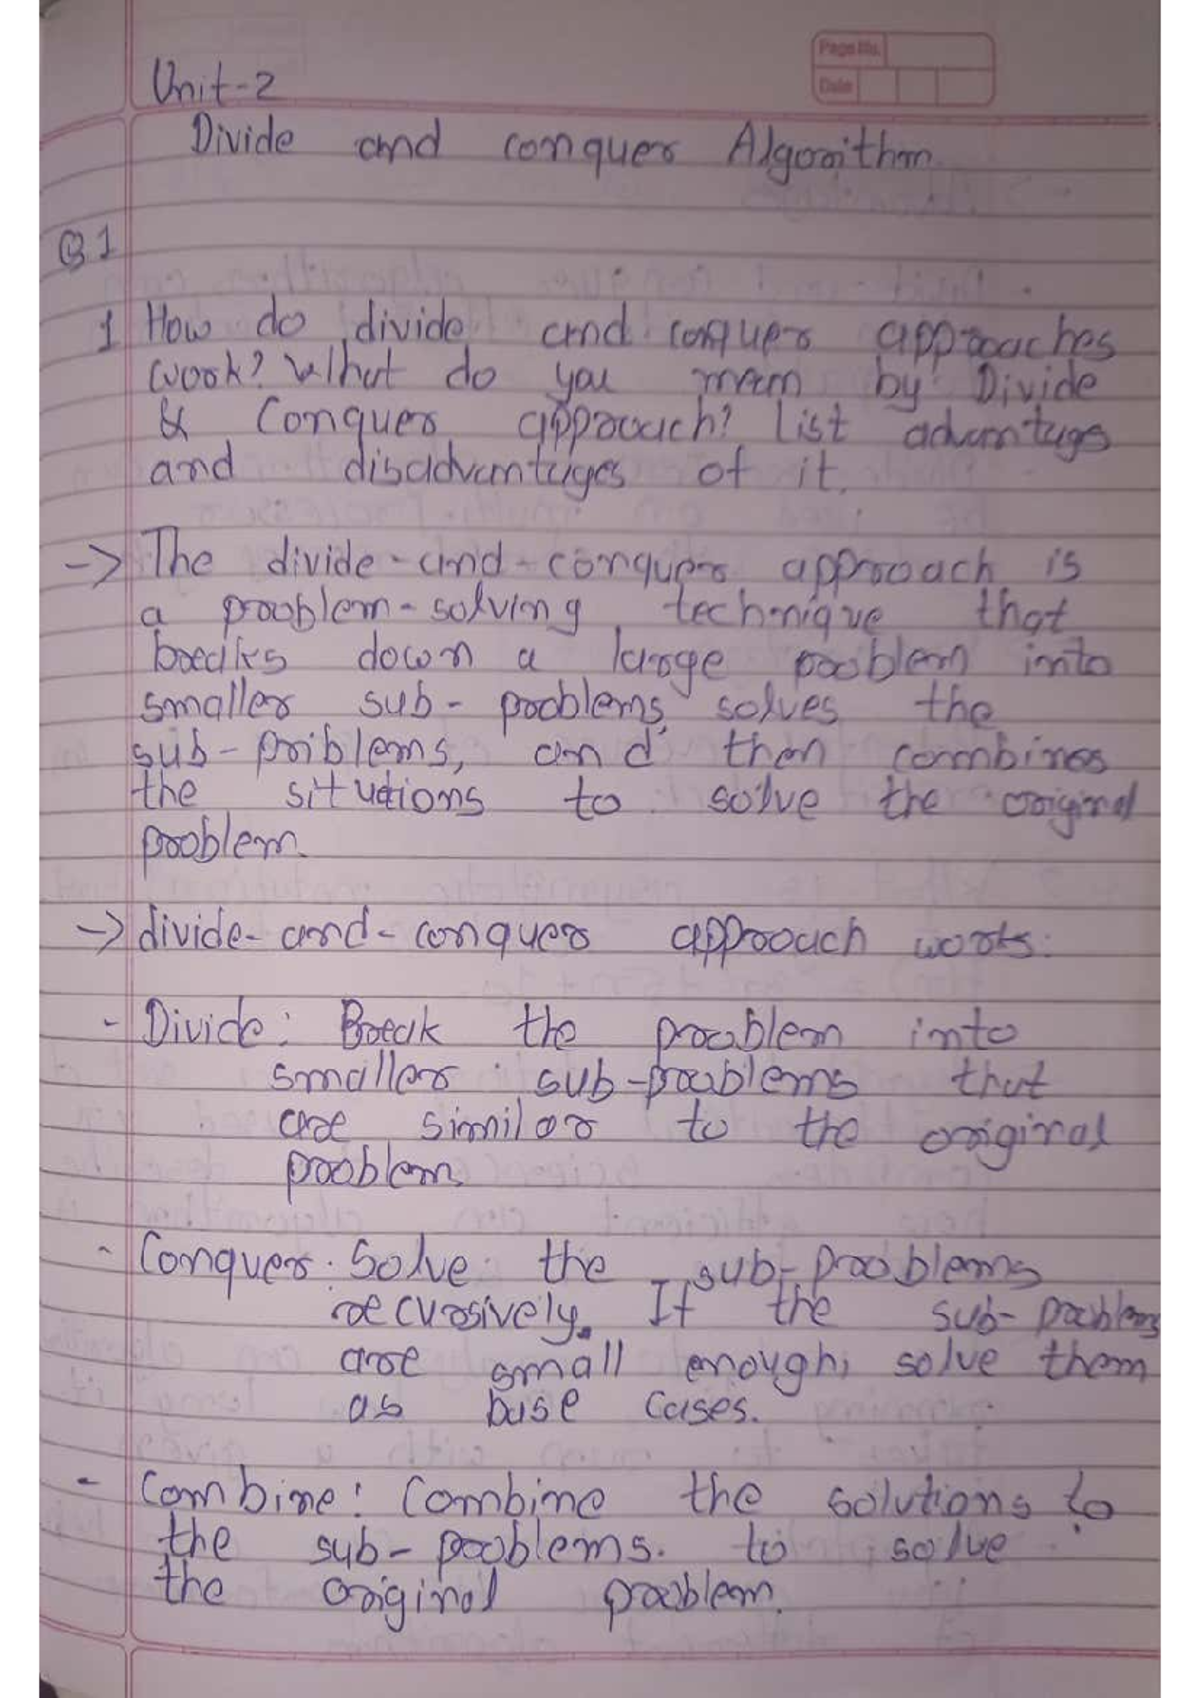 Page No.
Date
Unit-2
Divide and conquer Algorithm
Q1
1 How do divide and conquer approaches
work? What do you mean by Divide
& Conquer approach? List advantags
and disadvantages of it.
-> The divide-and-conquer approach is
a problem-solving technique that
breaks down a large problem into
smaller sub-problems, solves the
sub-priblems, and then combines
the situations to solve the original
problem.
-> divide-and-conquer approach works:
- Divide: Break the problem into
smaller sub-problems that
are similar to the original
problem.
- Conquer: Solve the sub-problems
recursively. If the sub-problems
are small enough, solve them
as base cases.
- Combine: Combine the solutions to
the sub-problems. to solve
the original problem.